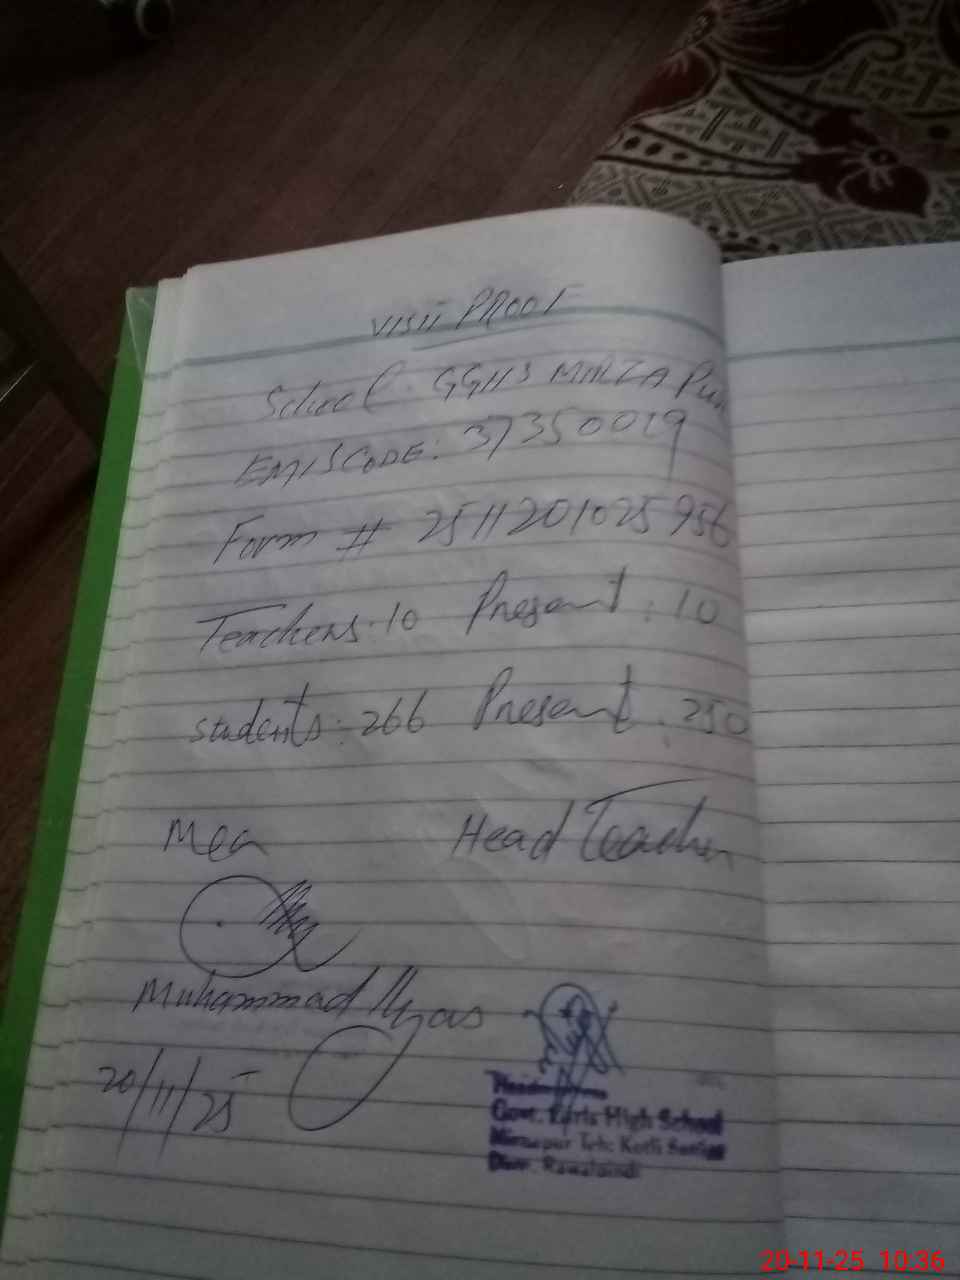 Visit PROOF
School: GGHS MIRZA Pur
EMISCODE: 37350019
Form # 2511201025956
Teachers: 10 Present: 10
students: 266 Present: 250
Mea Head Teacher
Muhammad Ilyas
20/11/25
Govt. Girls High School
Mirzapur Teh: Kotli Sattian
Distt. Rawalpindi
20-11-25 10:36